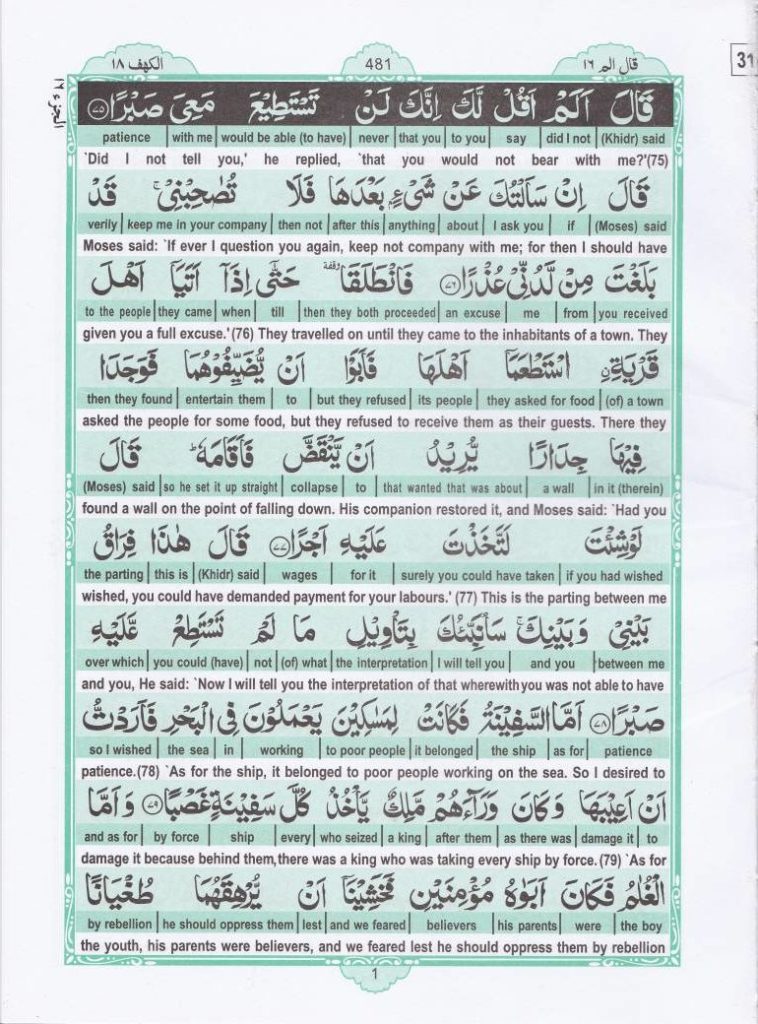 الكهف ١٨ 481 قال الم ١٦
31
الجزء ١٦
قَالَ اَلَمْ اَقُلْ لَّكَ اِنَّكَ لَنْ تَسْتَطِيْعَ مَعِىَ صَبْرًا ﴿٧٥﴾
patience | with me | would be able (to have) | never | that you | to you | say | did I not | (Khidr) said
`Did I not tell you,' he replied, `that you would not bear with me?'(75)
قَالَ اِنْ سَاَلْتُكَ عَنْ شَىْءٍۭ بَعْدَهَا فَلَا تُصٰحِبْنِىْ ۚ قَدْ
verily | keep me in your company | then not | after this | anything | about | I ask you | if | (Moses) said
Moses said: `If ever I question you again, keep not company with me; for then I should have
بَلَغْتَ مِنْ لَّدُنِّىْ عُذْرًا ﴿٧٦﴾ فَانْطَلَقَا وقفة حَتّٰٓى اِذَآ اَتَيَآ اَهْلَ
to the people | they came | when | till | then they both proceeded | an excuse | me | from | you received
given you a full excuse.' (76) They travelled on until they came to the inhabitants of a town. They
قَرْيَةِۨ اسْتَطْعَمَآ اَهْلَهَا فَاَبَوْا اَنْ يُّضَيِّفُوْهُمَا فَوَجَدَا
then they found | entertain them | to | but they refused | its people | they asked for food | (of) a town
asked the people for some food, but they refused to receive them as their guests. There they
فِيْهَا جِدَارًا يُّرِيْدُ اَنْ يَّنْقَضَّ فَاَقَامَهٗ ؕ قَالَ
(Moses) said | so he set it up straight | collapse | to | that wanted that was about | a wall | in it (therein)
found a wall on the point of falling down. His companion restored it, and Moses said: `Had you
لَوْ شِئْتَ لَتَّخَذْتَ عَلَيْهِ اَجْرًا ﴿٧٧﴾ قَالَ هٰذَا فِرَاقُ
the parting | this is | (Khidr) said | wages | for it | surely you could have taken | if you had wished
wished, you could have demanded payment for your labours.' (77) This is the parting between me
بَيْنِىْ وَبَيْنِكَ ۚ سَاُنَبِّئُكَ بِتَاْوِيْلِ مَا لَمْ تَسْتَطِعْ عَّلَيْهِ
over which | you could (have) | not | (of) what | the interpretation | I will tell you | and you | between me
and you, He said: `Now I will tell you the interpretation of that wherewith you was not able to have
صَبْرًا ﴿٧٨﴾ اَمَّا السَّفِيْنَةُ فَكَانَتْ لِمَسٰكِيْنَ يَعْمَلُوْنَ فِى الْبَحْرِ فَاَرَدْتُّ
so I wished | the sea | in | working | to poor people | it belonged | the ship | as for | patience
patience.(78) `As for the ship, it belonged to poor people working on the sea. So I desired to
اَنْ اَعِيْبَهَا وَكَانَ وَرَآءَهُمْ مَّلِكٌ يَّاْخُذُ كُلَّ سَفِيْنَةٍ غَصْبًا ﴿٧٩﴾ وَاَمَّا
and as for | by force | ship | every | who seized | a king | after them | as there was | damage it | to
damage it because behind them, there was a king who was taking every ship by force. (79) `As for
الْغُلٰمُ فَكَانَ اَبَوٰهُ مُؤْمِنَيْنِ فَخَشِيْنَآ اَنْ يُّرْهِقَهُمَا طُغْيَانًا
by rebellion | he should oppress them | lest | and we feared | believers | his parents | were | the boy
the youth, his parents were believers, and we feared lest he should oppress them by rebellion
1